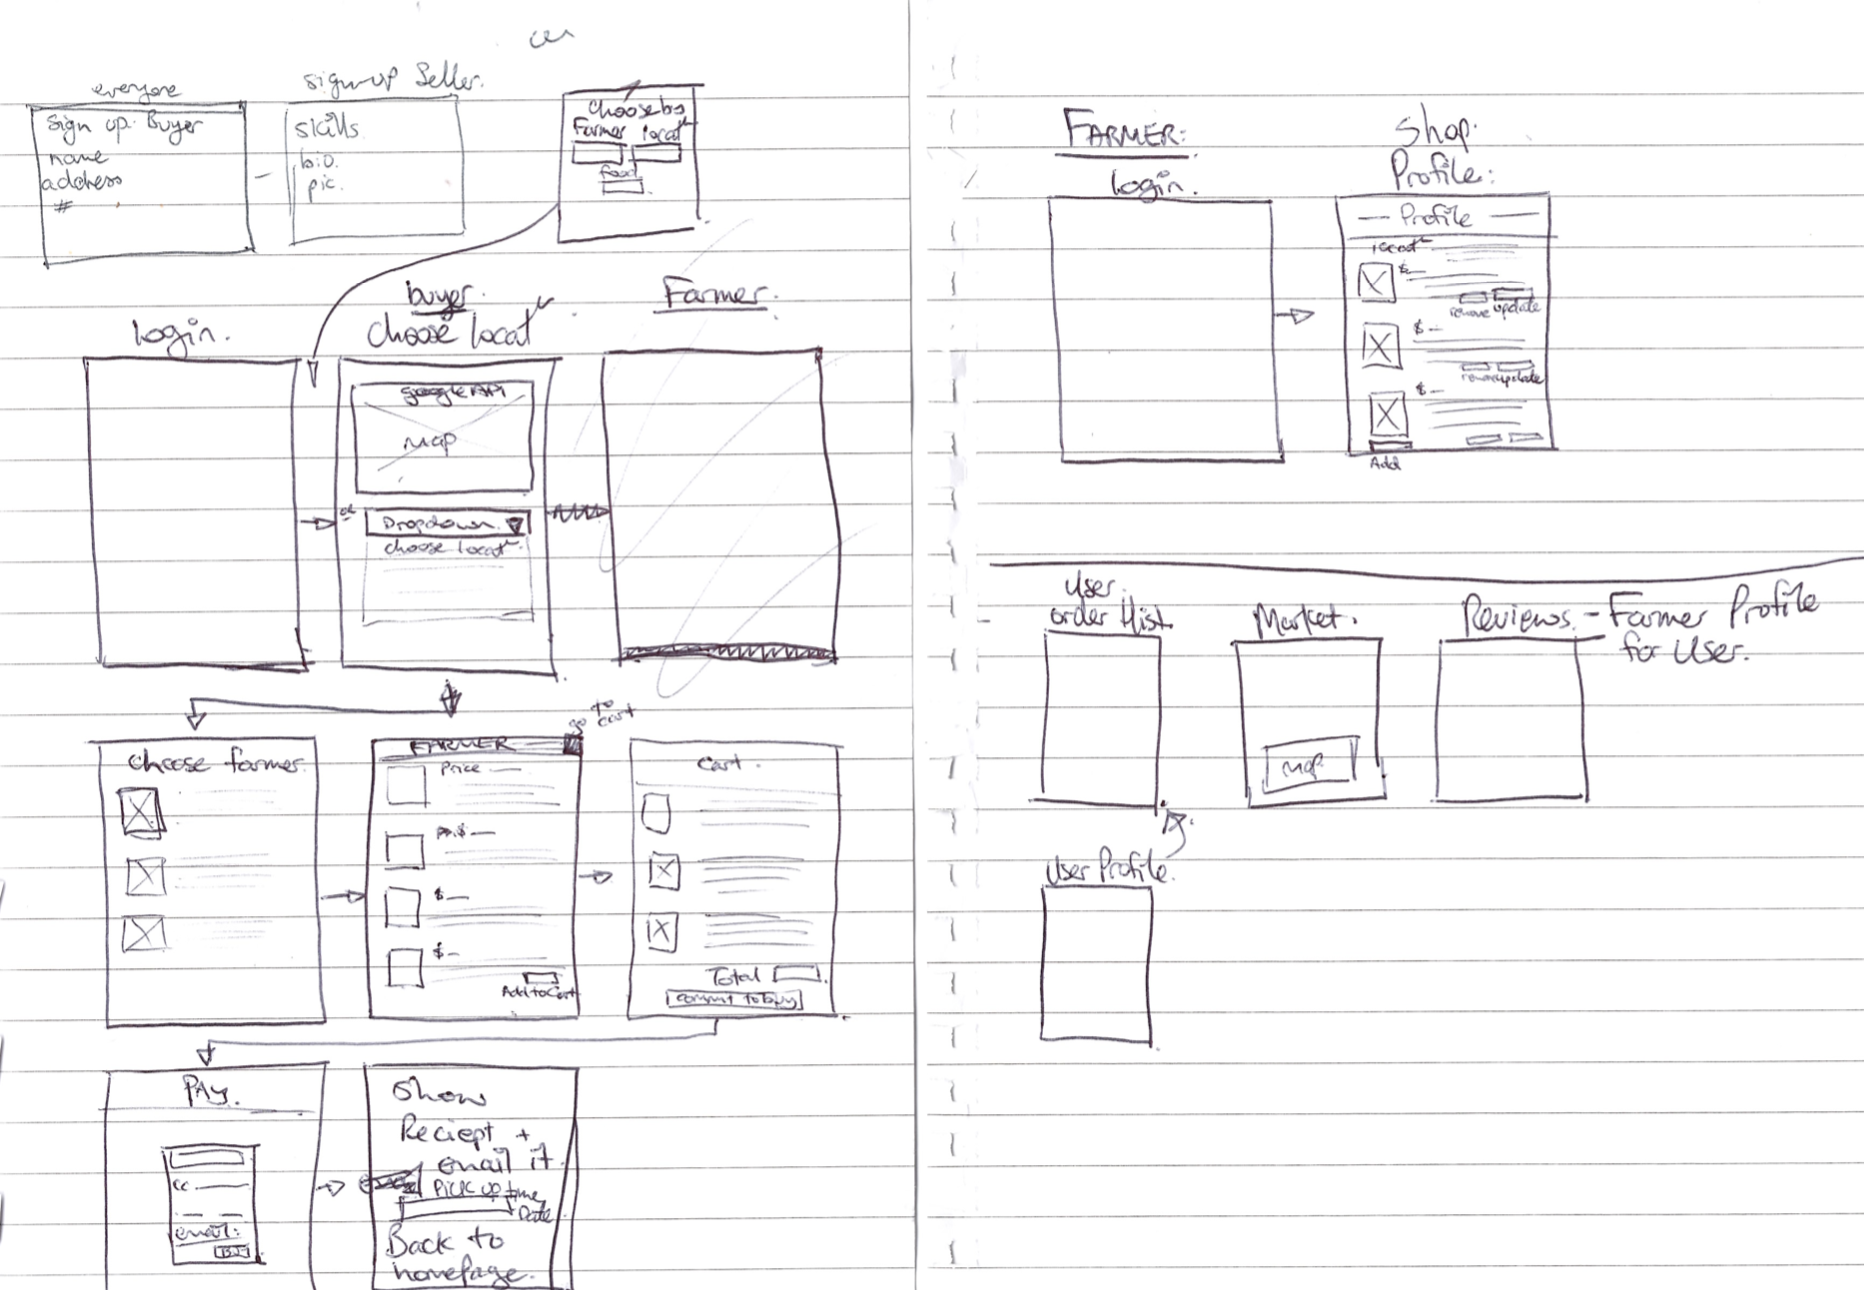 everyone
Sign up: Buyer
name
address
#
sign-up Seller.
skills
bio.
pic.
Choose by
Farmer locat
food
login.
buyer.
choose locat
Farmer.
google API
map
or
Dropdown
choose locat
go to cart
choose farmer
FARMER
Price
$
$
$
Add to Cart
Cart.
Total
commit to buy
PAY.
cc
email:
Show
Reciept +
email it
Pick up time
Date
Back to
homepage.
FARMER:
login.
Shop
Profile:
Profile
locat
$
remove update
$
remove update
$
Add
User
order Hist.
Market.
map
Reviews. - Farmer Profile
for User.
User Profile.